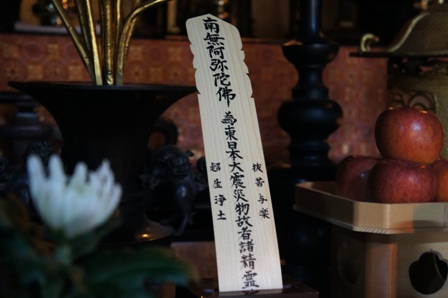 南無阿弥陀佛 為東日本大震災物故者諸精霊
抜苦与楽
超生浄土